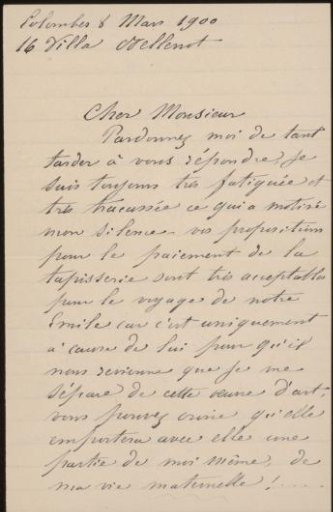 Colombes 8 Mars 1900
16 Villa
Cher Monsieur
Pardonnez moi de tant
tarder à vous répondre, je
suis toujours très fatiguée et
très tracassée ce qui a motivé
mon silence vos propositions
pour le paiement de la
tapisserie sont très acceptables
pour le voyage de notre
Emile car c'est uniquement
à cause de lui pour qu'il
nous revienne que je me
sépare de cette œuvre d'art;
vous pouvez croire qu'elle
emportera avec elle une
partie de moi même, de
ma vie maternelle !....